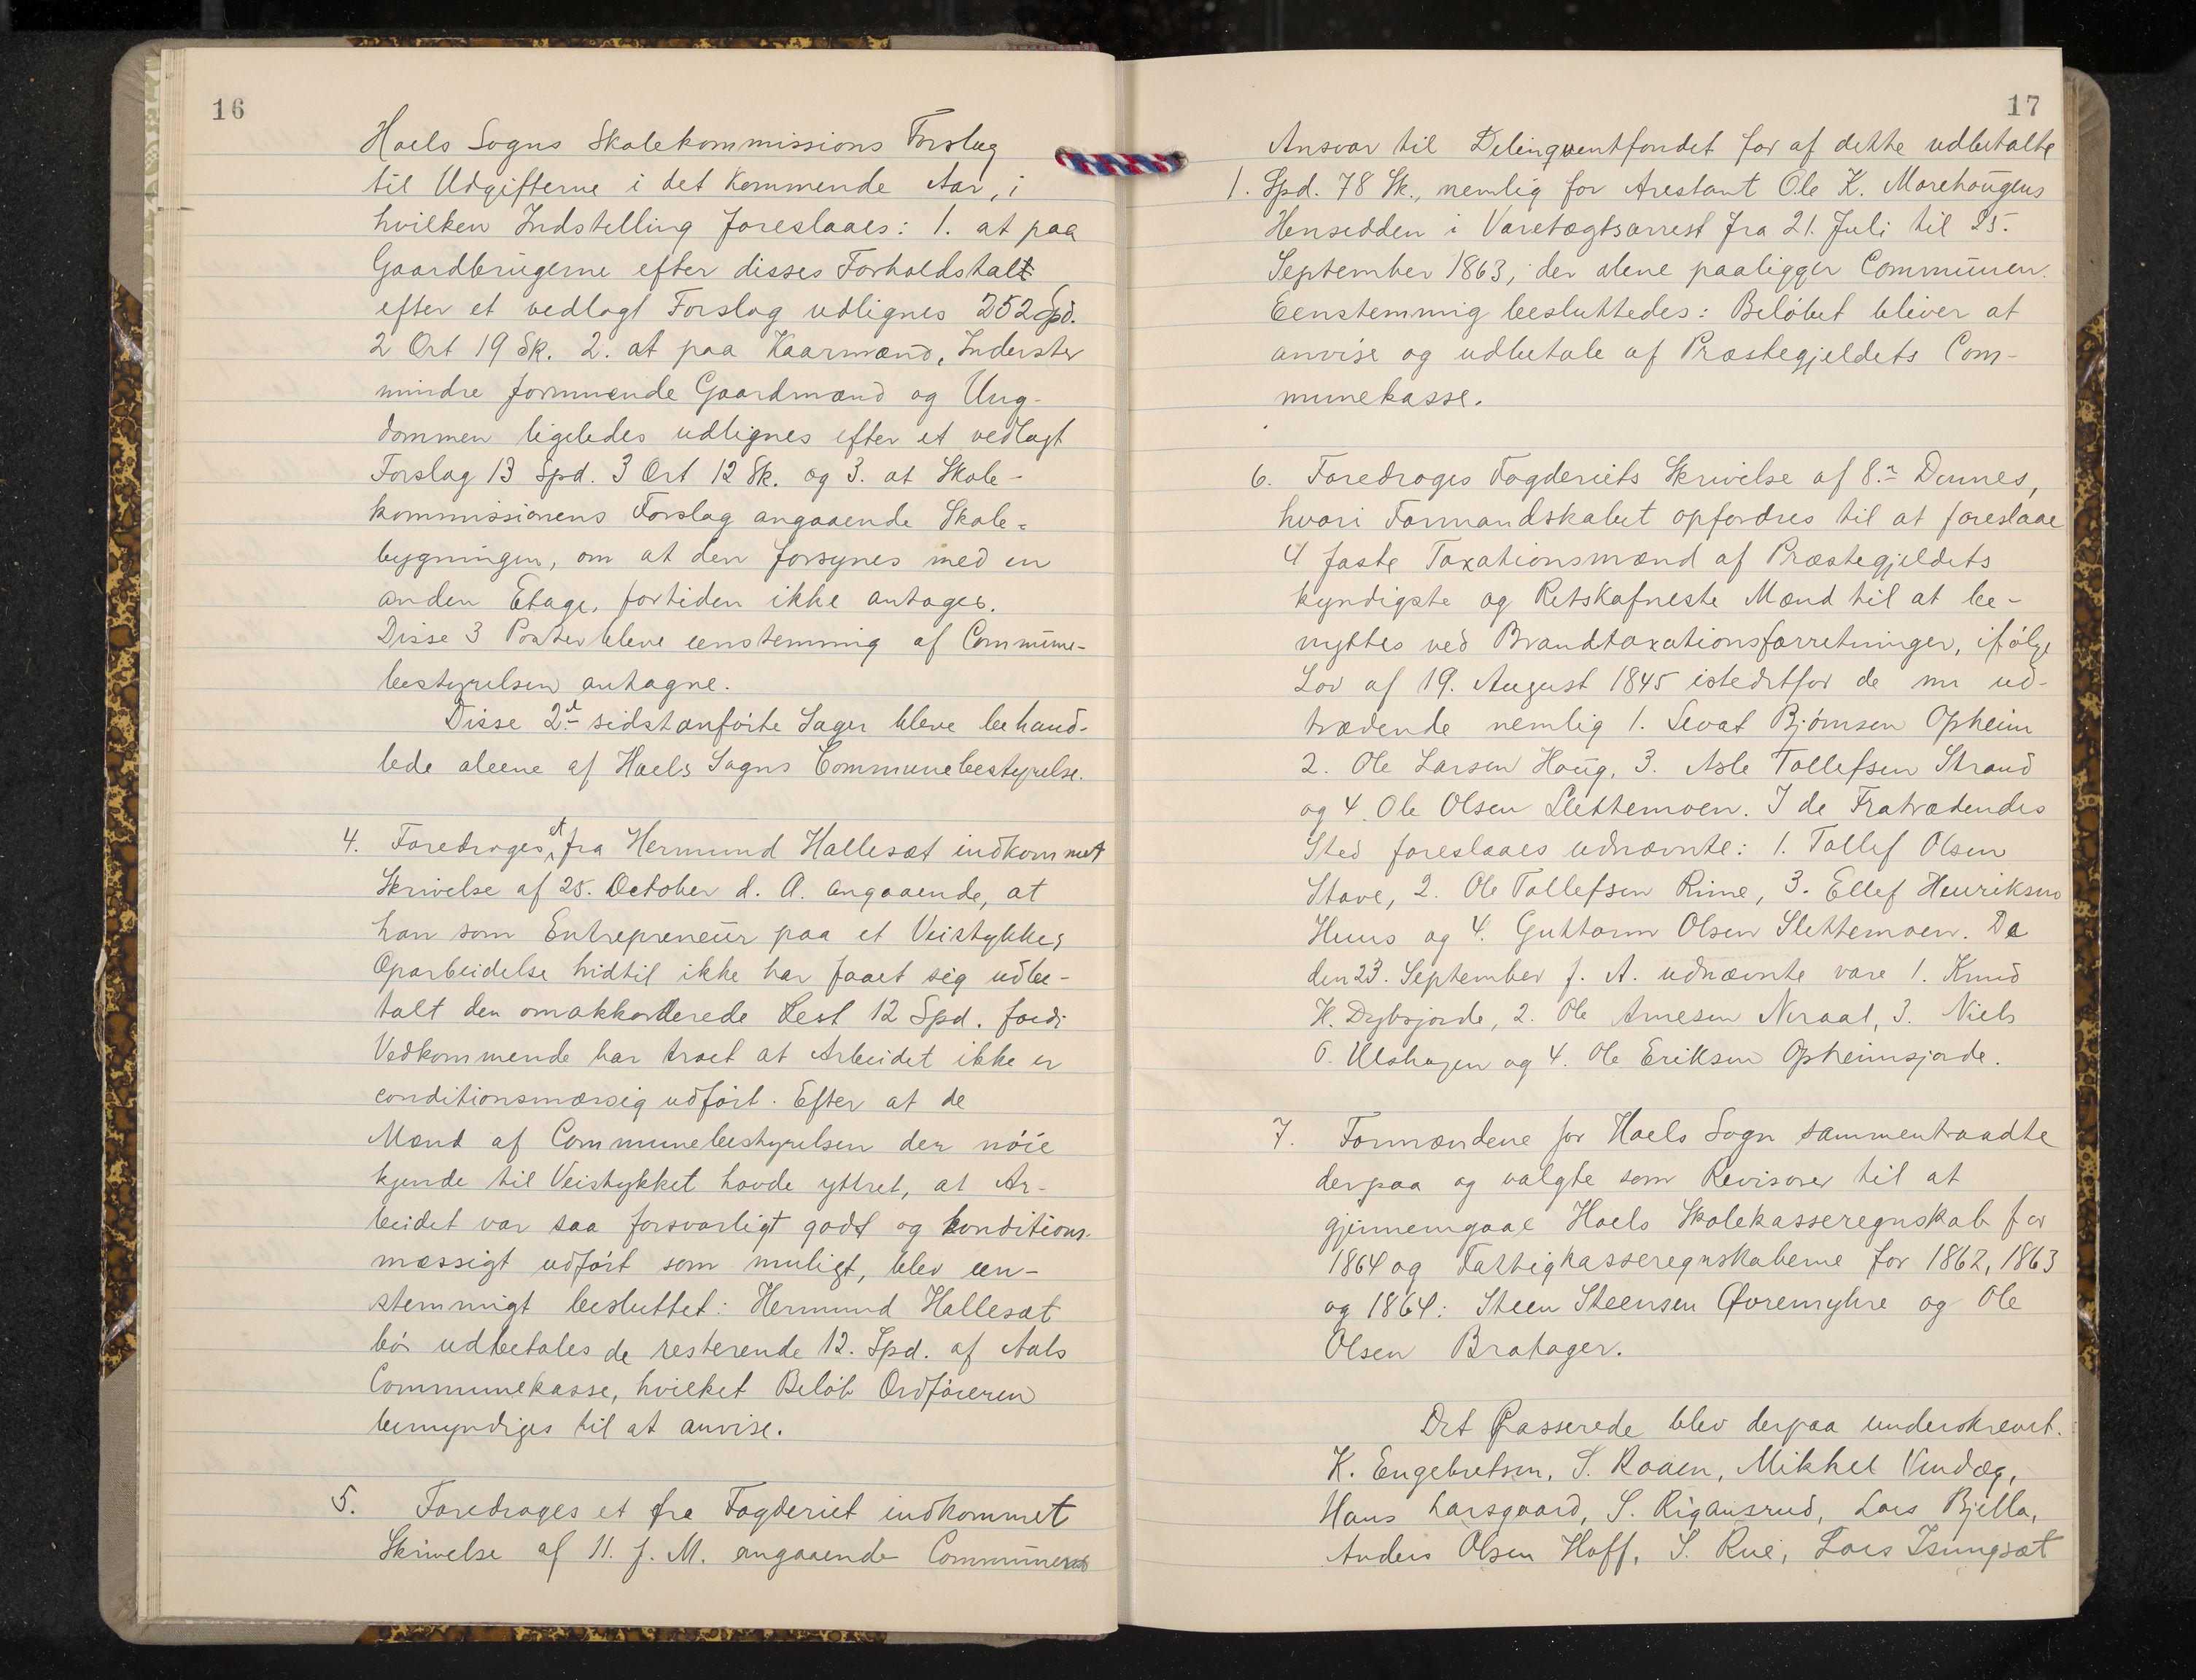 16
Haels Sogns Skolekommissions Forslag
til Udgifterne i det Kommende Aar, i
hvilken Indstilling foreslaaes: 1. at paa
Gaardbrugerne efter disses Forholdstal
efter et vedlagt Forslag udlignes 252 Spd.
2 Ort 19 Sk. 2. at paa Kaarmænd, Inderster
mindre formuende Gaardmænd og Ung-
dommen ligeledes udlignes efter et vedlagt
Forslag 13 Spd. 3 Ort 12 Sk. og 3. at Skole-
kommissionens Forslag angaaende Skole-
bygningen, om at den forsynes med en
anden Etage, fortiden ikke antages.
Disse 3 Poster bleve eenstemmig af Commune-
bestyrelsen antagne.
Disse 2de sidstanførte Sager bleve behand-
lede aleene af Haels Sogns Communebestyrelse.
4. Foredroges et fra Hermund Hallesæt indkommet
Skrivelse af 25. October d. A. angaaende, at
han som Entrepreneur paa et Veistykkes
Oparbeidelse hidtil ikke har faaet sig udbe-
talt den omakkorderede Rest 12 Spd. fordi
Vedkommende har troet at Arbeidet ikke er
conditionsmæssig udført. Efter at de
Mænd af Communebestyrelsen der nøie
kjende til Veistykket havde yttret, at Ar-
beidet var saa forsvarligt godt og konditions-
mæssigt udført som muligt, blev een-
stemmigt besluttet: Hermund Hallesæt
bør udbetales de resterende 12. Spd. af Aals
Communekasse, hvilket Beløb Ordføreren
bemyndiges til at anvise.
5. Foredroges et fra Fogderiet indkommet
Skrivelse af 11. f. M. angaaende Communens
17
Ansvar til Delinqventfondet for af dette udbetalte
1. Spd. 78 Sk., nemlig for Arestant Ole K. Morehaugens
Hensidden i Varetægtsarrest fra 21. Juli til 25.
September 1863, der alene paaligger Communen.
Eenstemmig besluttedes: Beløbet bliver at
anvise og udbetale af Præstegjeldets Com-
munekasse.
6. Foredroges Fogderiets Skrivelse af 8. Dennes,
hvori Formandskabet opfordres til at foreslaae
4 faste Taxationsmænd af Præstegjeldets
kyndigste og Retskafneste Mænd til at be-
nyttes ved Brandtaxationsforretninger, ifølge
Lov af 19. August 1845 istedetfor de nu ud-
trædende nemlig 1. Sevat Bjørnsen Opheim
2. Ole Larsen Haug, 3. Asle Tollefsen Strand
og 4. Ole Olsen Slettemoen. I de Fratrædendes
Sted foreslaaes udnævnte: 1. Tollef Olsen
Stave, 2. Ole Tollefsen Rime, 3. Ellef Henriksens
Huus og 4. Guttorm Olsen Slettemoen. De
den 23. September f. A. udnævnte vare 1. Knud
H. Dybsjorde, 2. Ole Arnesen Noraal, 3. Niels
O. Ulshagen og 4. Ole Eriksen Opheimsjorde.
7. Formændene for Haels Sogn sammentraadte
derpaa og valgte som Revisorer til at
gjennemgaae Haels Skolekasseregnskab for
1864 og Fattigkasseregnskaberne for 1862, 1863
og 1864: Steen Steensen Øvremyhre og Ole
Olsen Bratager.
Det Passerede blev derpaa underskrevet.
K. Engebretsen, S. Raaen, Mikkel Vindæg,
Hans Larsgaard, S. Rigansrud, Lars Bjella,
Anders Olsen Hoff, S. Rue, Lars Isungsæt